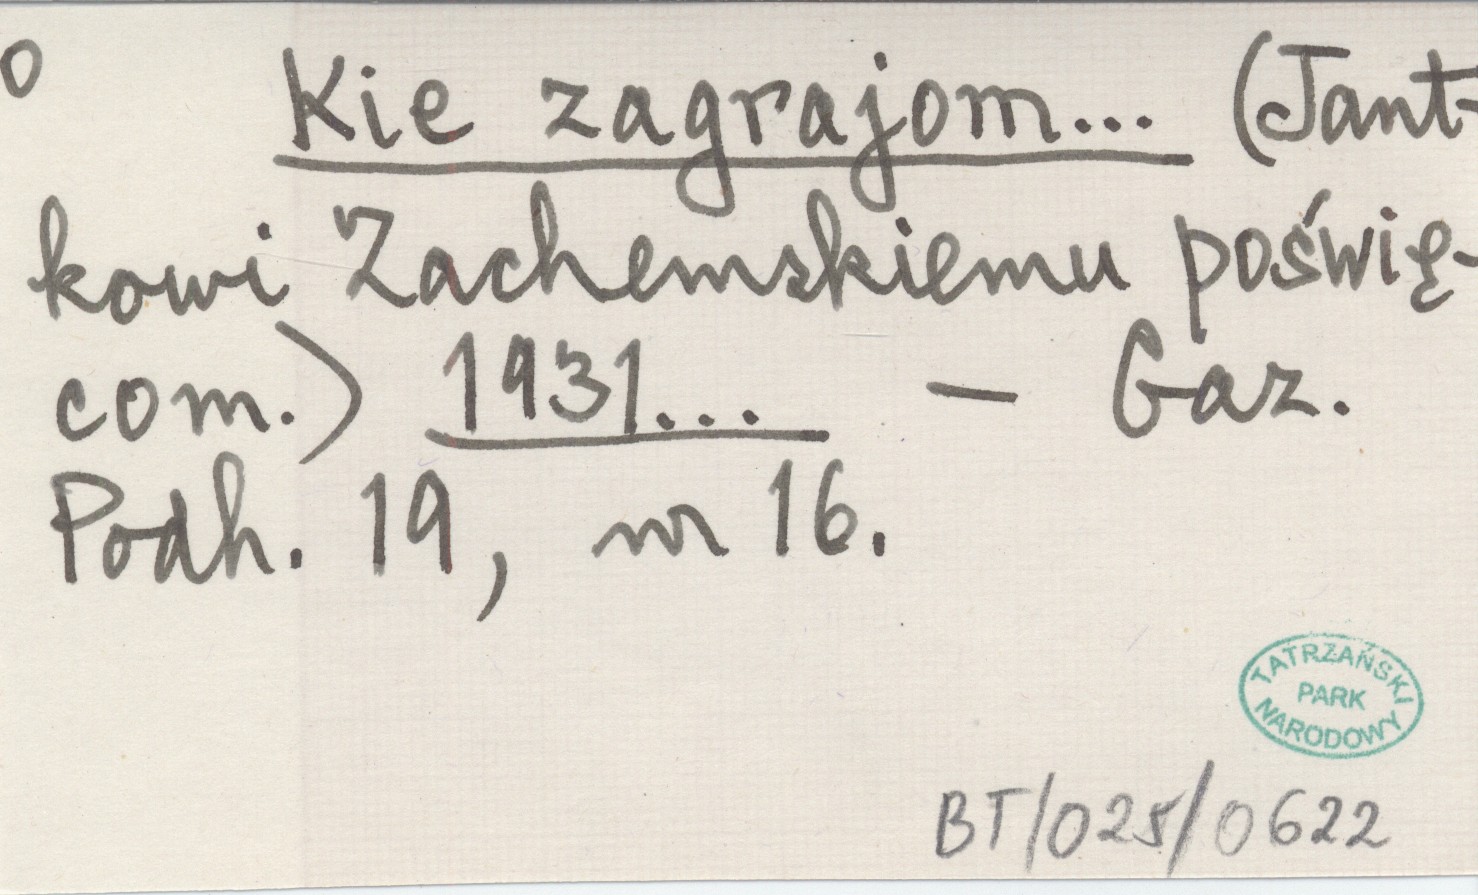 o Kie zagrajom... (Jant-
kowi Zachemskiemu poświę-
com.) 1931... — Gaz.
Podh. 19, nr 16.
TATRZAŃSKI
PARK
NARODOWY
BT/025/0622